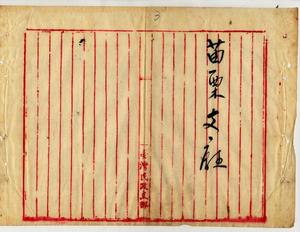 苗栗支廳
臺灣民政支部